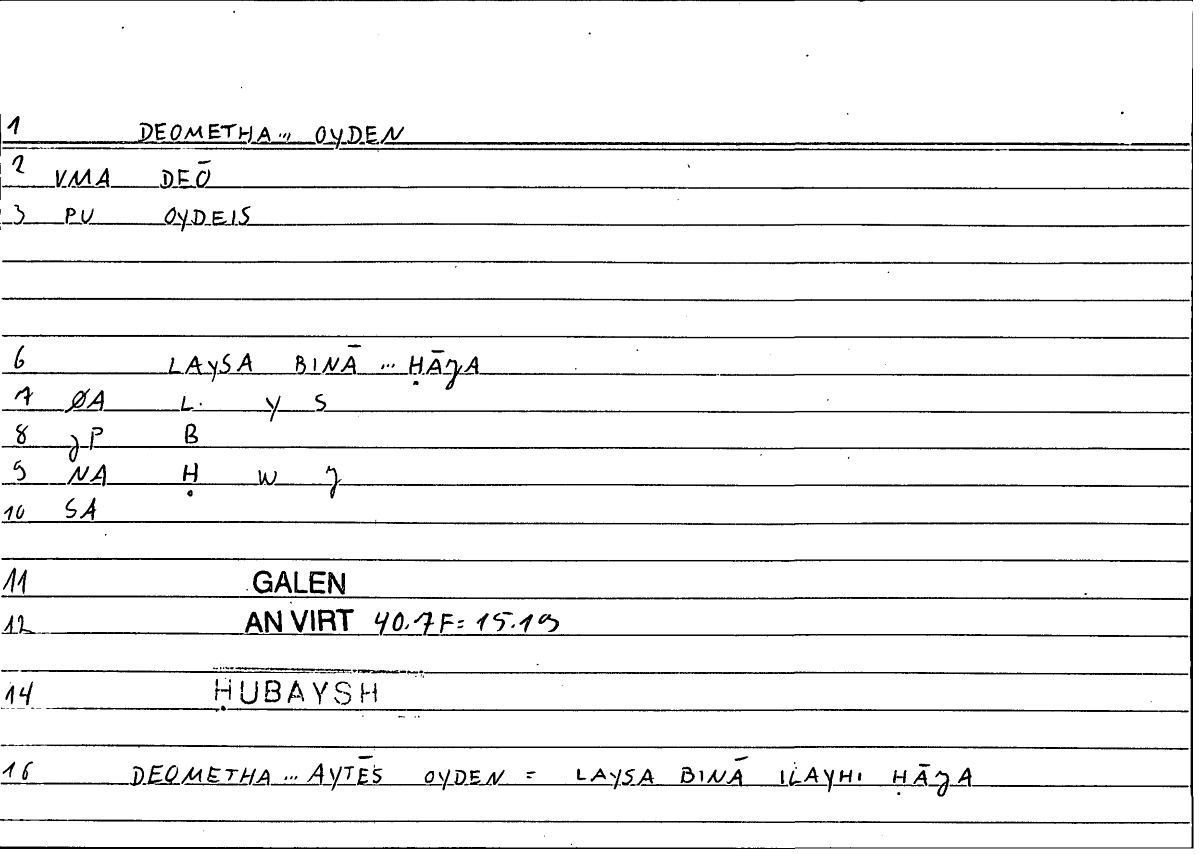 1 DEOMETHA... OYDEN
2 VMA DEŌ
3 PU OYDEIS
6 LAYSA BINĀ ... ḤĀJA
7 ØA L Y S
8 JP B
9 NA Ḥ W J
10 SA
11 GALEN
12 AN VIRT 40.7F = 15.19
14 ḤUBAYSH
16 DEOMETHA ... AYTĒS OYDEN = LAYSA BINĀ ILAYHI ḤĀJA